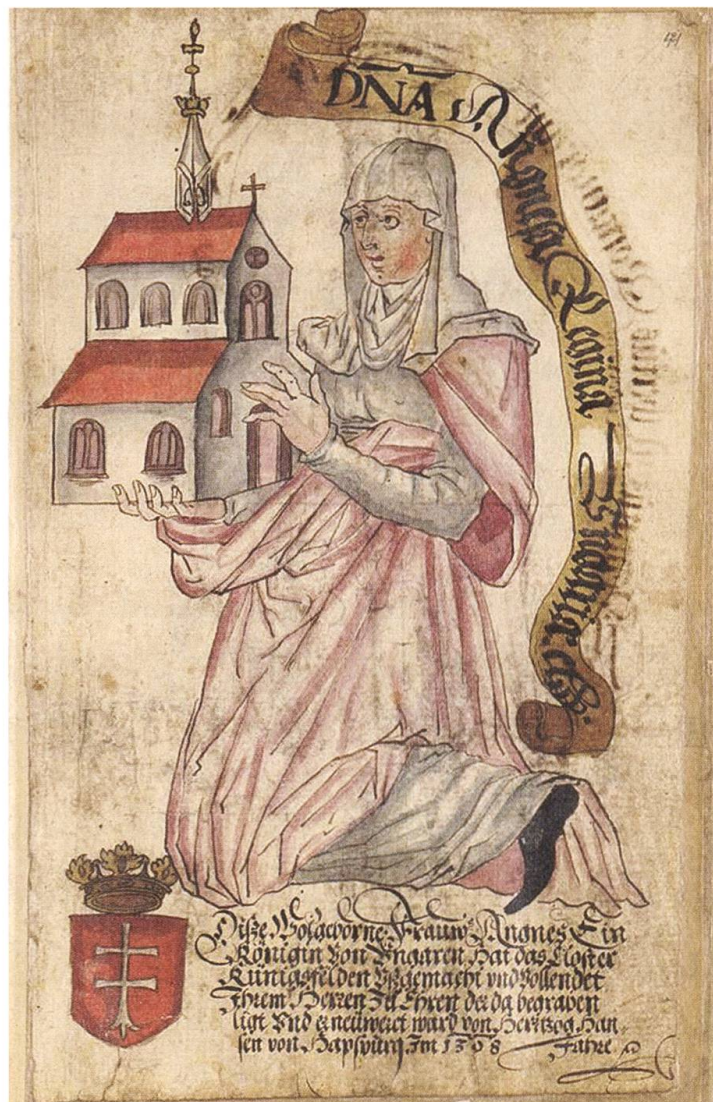 DNA Agnesa Regina Vngariæ etc.
Disze Wolgeborne Frauw Angnes Ein
Königin Von Vngaren Hat das Closter
Künigsfelden Vßgemacht vnd Vollendet
Ihrem Herren Zu Ehren der da begraben
ligt Vnd erneuweret ward von Hertzog Han-
sen von Hapspurg Im 1308 Jahre